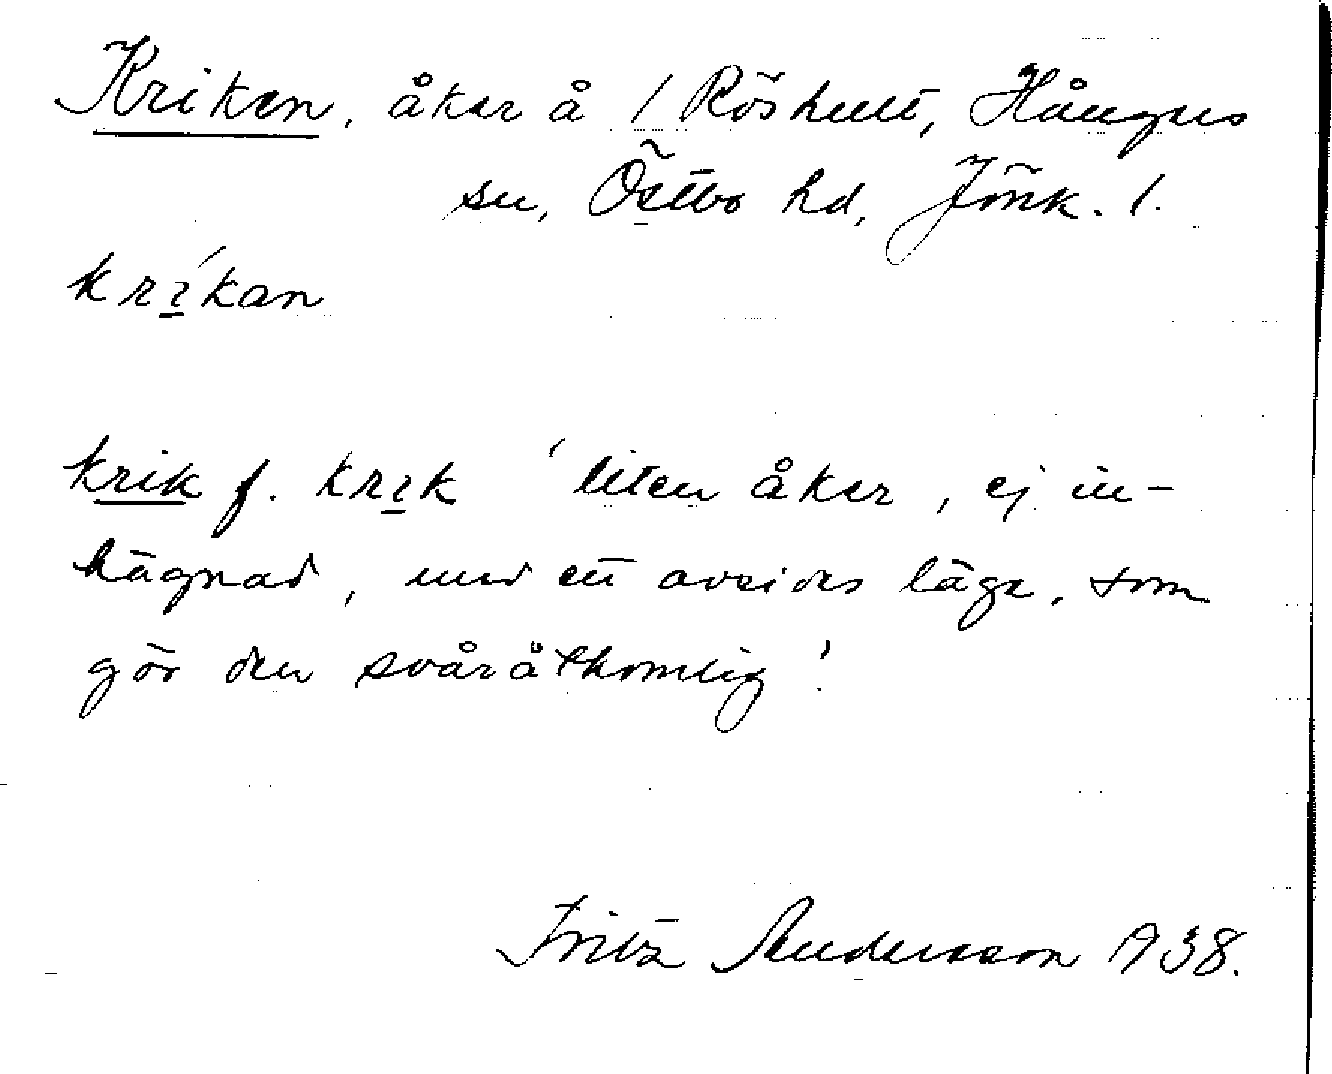 Kriken, åker å 1 Röshult, Hånger
sn, Östbo hd, Jönk. l.
krɩ́kan
krik f. krɩk 'liten åker, ej in-
hägnad, med ett avsides läge, som
gör den svåråtkomlig'.
Fritz Andersson 1938.